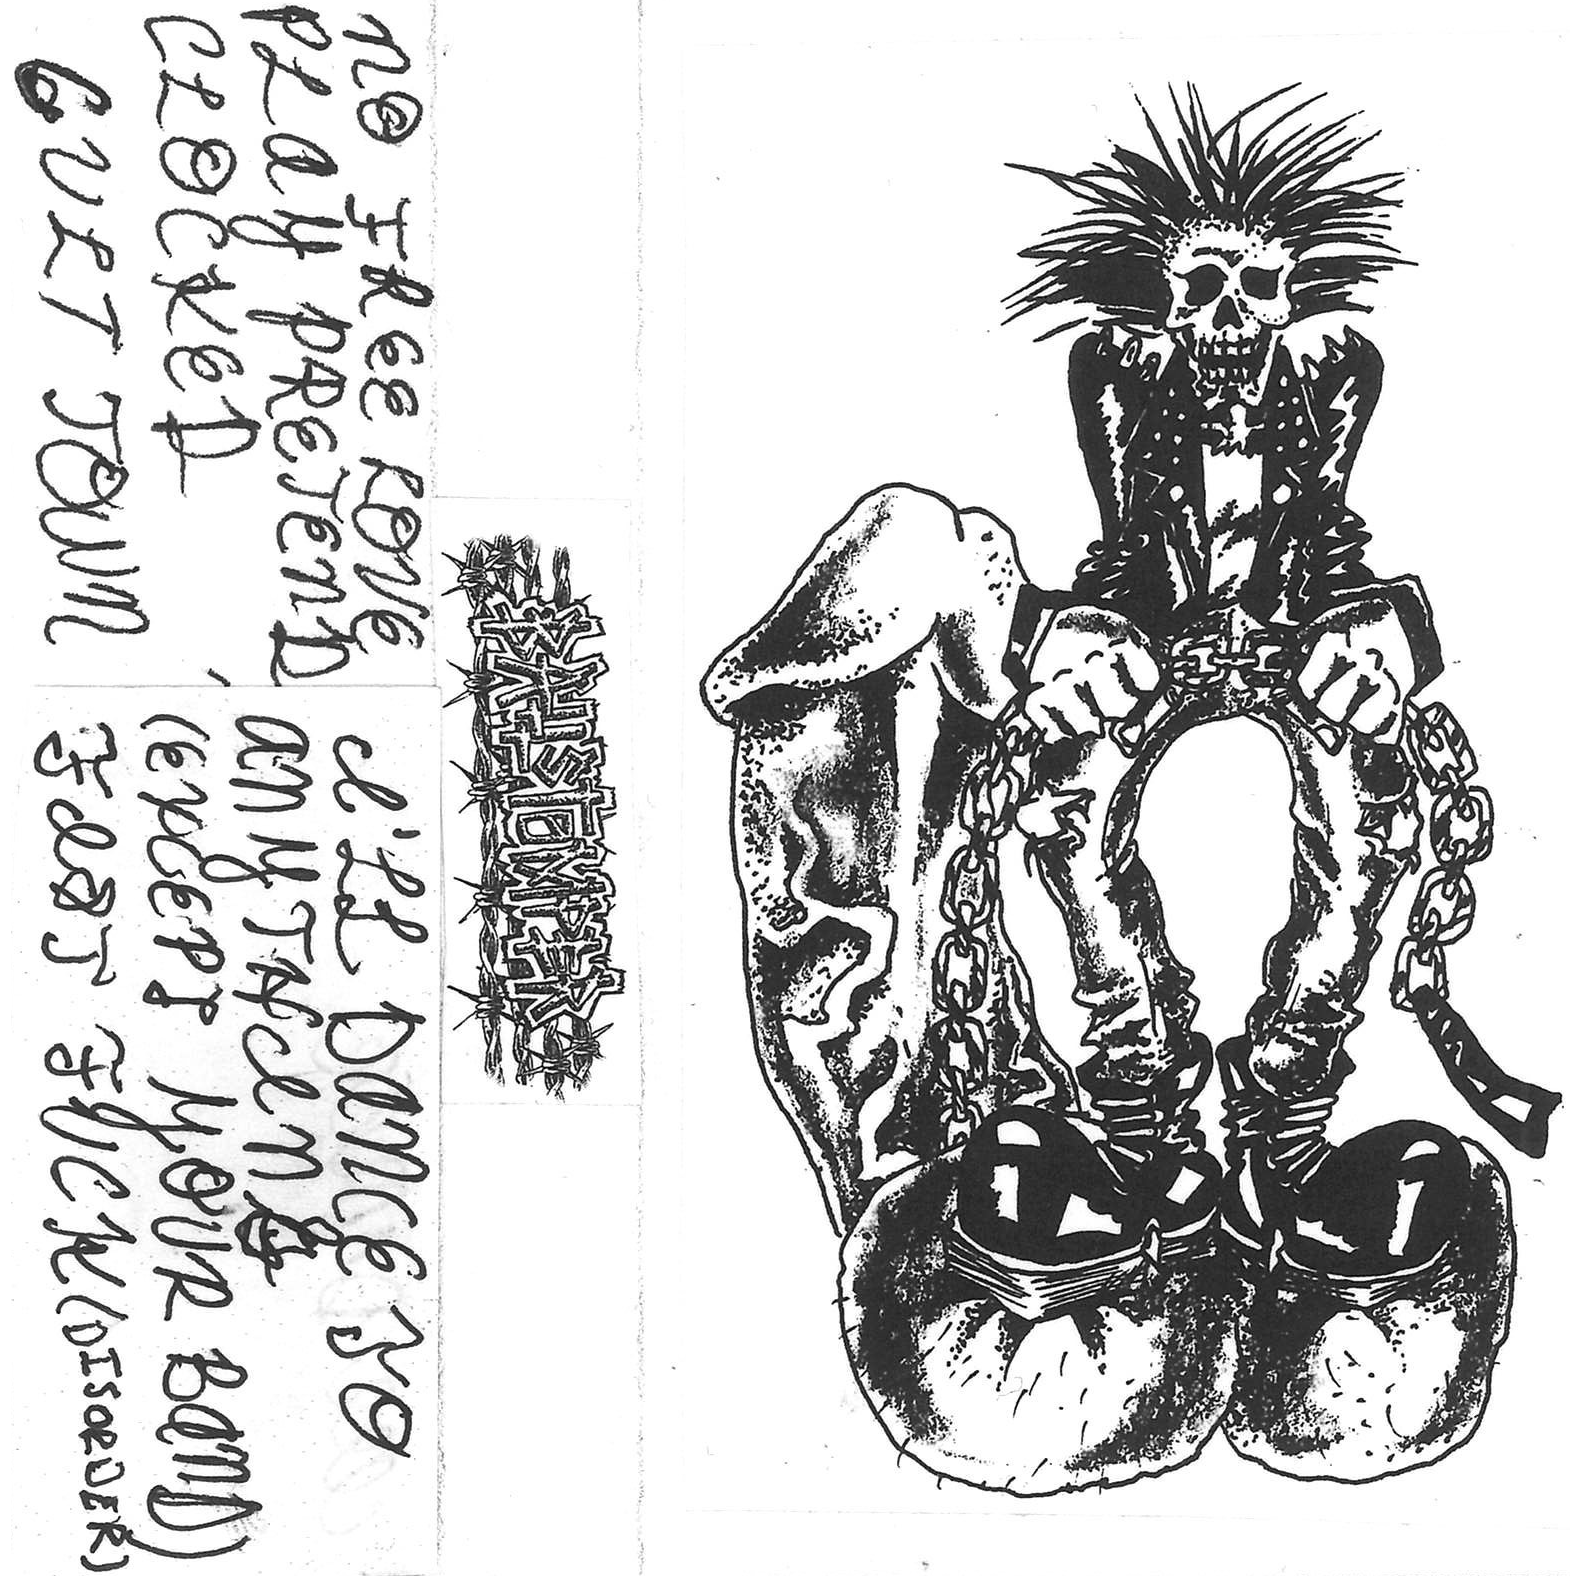 NO FREE LOVE
PLAY PRETEND
CLOCKED
GULT TOWN
I'LL DANCE TO
ANYTHING
(EXCEPT YOUR BAND)
FIST FUCK (DISORDER)
BALLSTOMPER